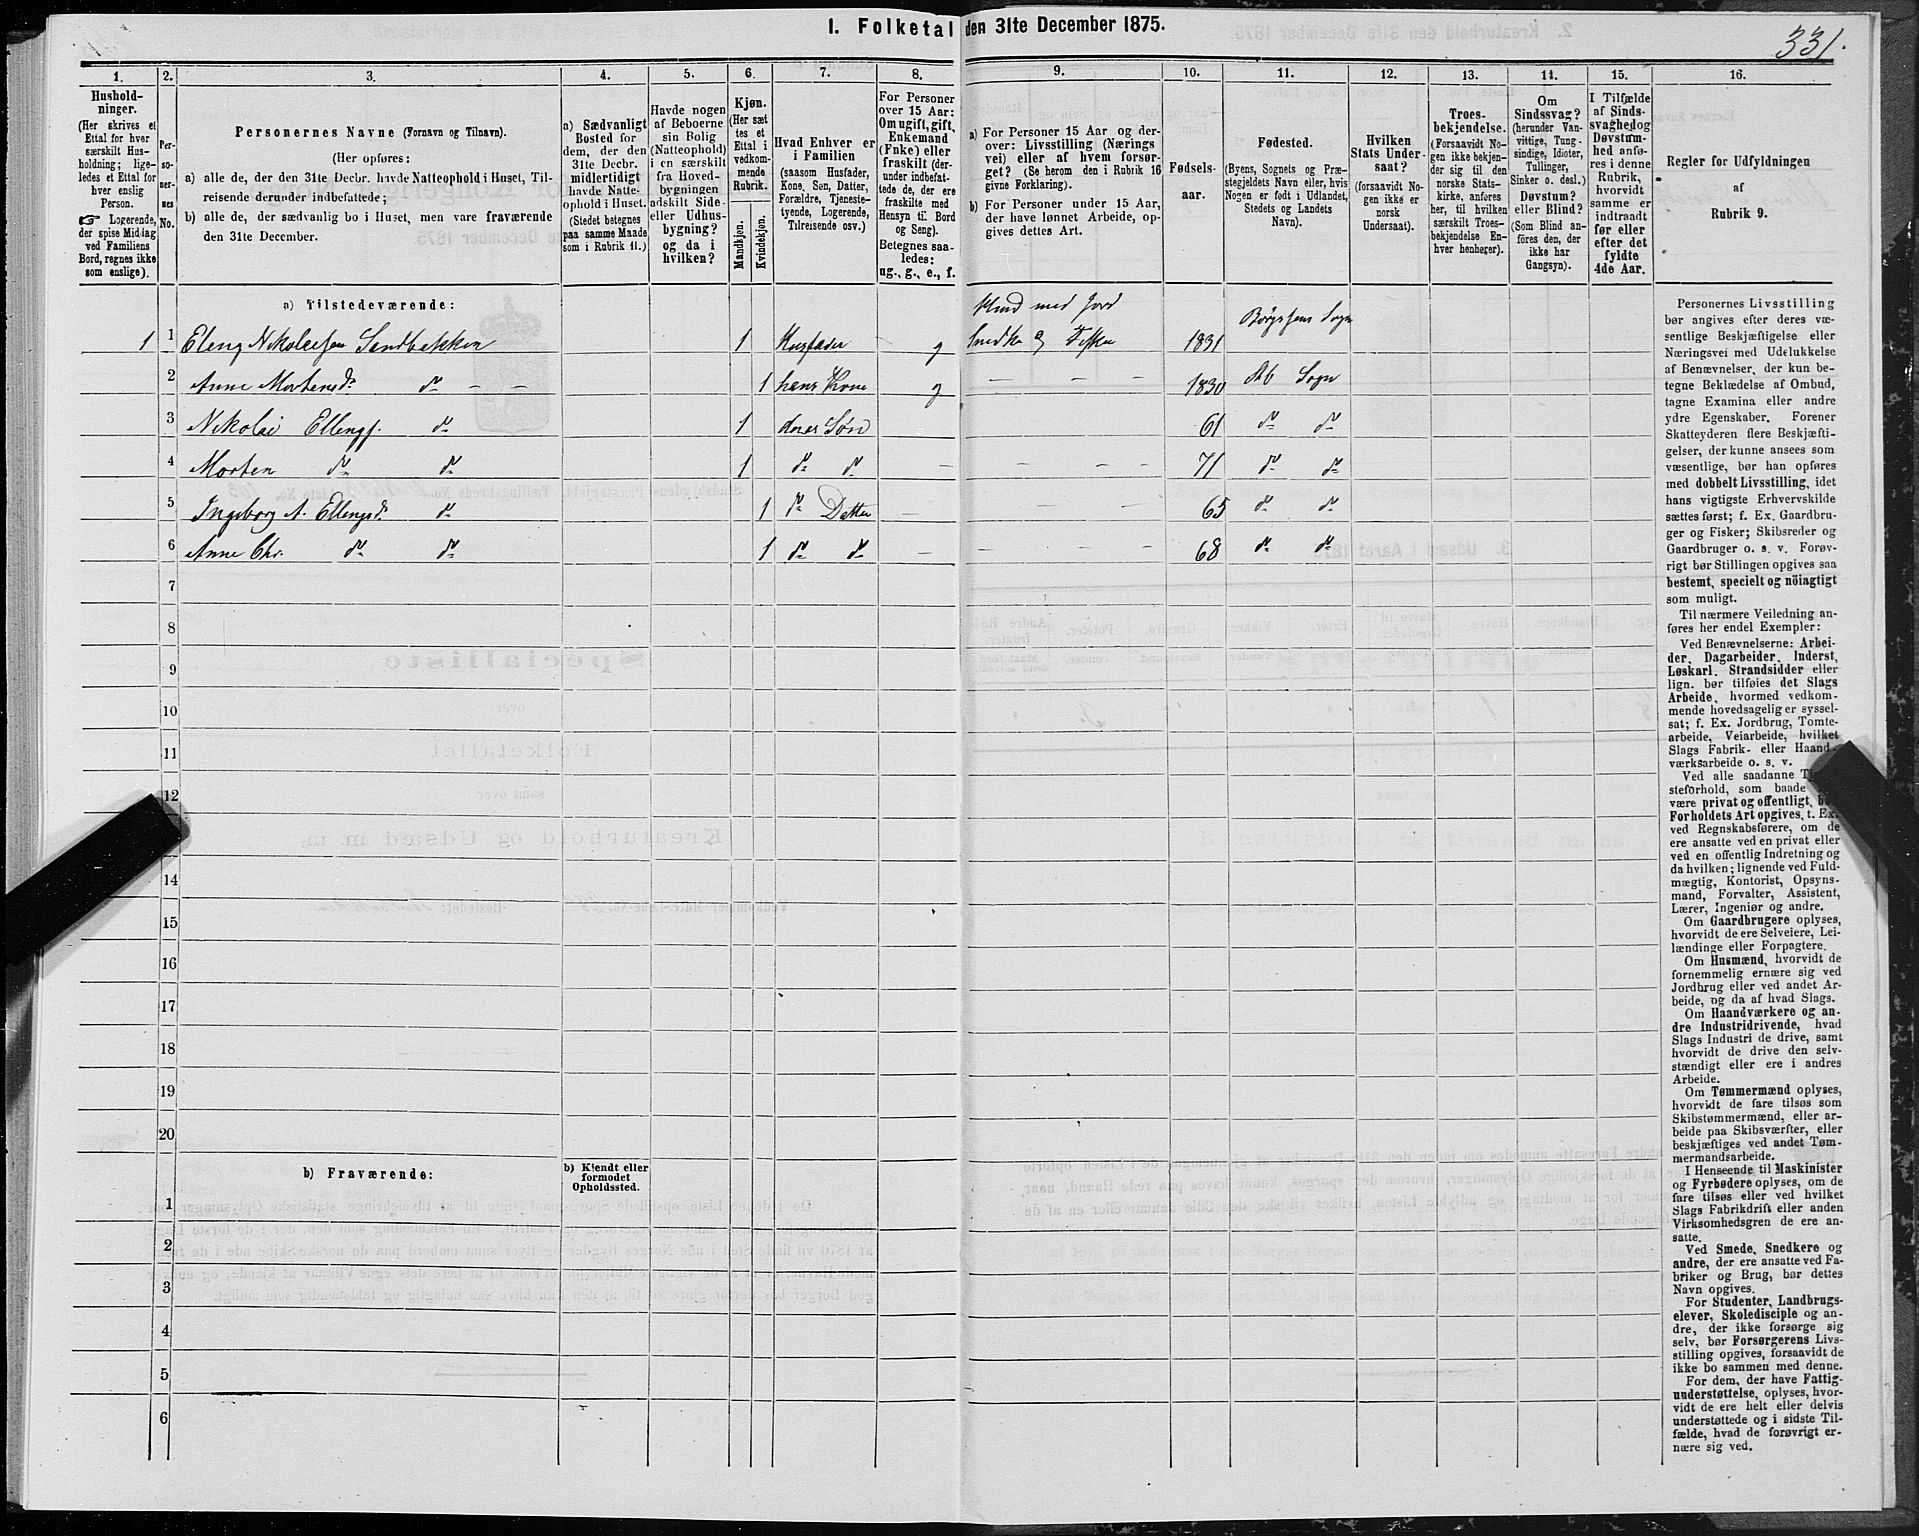 1. Folketal den 31te December 1875.
331.
1.
2.
3.
4.
5.
6.
7.
8.
9.
10.
11.
12.
13.
14.
15.
16.
Hushold-
ninger.
(Her skrives et
Ettal for hver
særskilt Hus-
holdning; lige-
ledes et Ettal for
hver enslig
Person.
☞ Logerende,
der spise Middag
ved Familiens
Bord, regnes ikke
som enslige).
Per-
so-
ner-
nes
No.
Personernes Navne (Fornavn og Tilnavn).
(Her opføres:
a) alle de, der den 31te Decbr. havde Natteophold i Huset, Til-
reisende derunder indbefattede;
b) alle de, der sædvanlig bo i Huset, men vare fraværende
den 31te December.
a) Sædvanligt
Bosted for
dem, der den
31te Decbr.
midlertidigt
havde Natte-
ophold i Huset.
(Stedet betegnes
paa samme Maade
som i Rubrik 11.)
Havde nogen
af Beboerne
sin Bolig
(Natteophold)
i en særskilt
fra Hoved-
bygningen
adskilt Side-
eller Udhus-
bygning?
og da i
hvilken?
Kjøn.
(Her sæt
tes et
Ettal i
vedkom-
mende
Rubrik.
Mandkjøn.
Kvindekjøn.
Hvad Enhver er
i Familien
(saasom Husfader,
Kone, Søn, Datter,
Forældre, Tjeneste-
tyende, Logerende,
Tilreisende osv.)
For Personer
over 15 Aar:
Om ugift, gift,
Enkemand
(Enke) eller
fraskilt (der-
under indbefat-
tede de, der ere
fraskilte med
Hensyn til Bord
og Seng).
Betegnes saa-
ledes:
ug., g., e., f.
a) For Personer 15 Aar og der-
over: Livsstilling (Nærings
vei) eller af hvem forsør-
get? (Se herom den i Rubrik 16
givne Forklaring).
b) For Personer under 15 Aar,
der have lønnet Arbeide, op-
gives dettes Art.
Fødsels-
aar.
Fødested.
(Byens, Sognets og Præ-
stegjeldets Navn eller, hvis
Nogen er født i Udlandet,
Stedets og Landets
Navn).
Hvilken
Stats Under-
saat?
(forsaavidt No-
gen ikke er
norsk
Undersaat).
Troes-
bekjendelse.
(Forsaavidt No-
gen ikke bekjen-
der sig til den
norske Stats-
kirke, anføres
her, til hvilken
særskilt Troes-
bekjendelse En-
hver henhører).
Om
Sindssvag?
(herunder Van-
vittige, Tung-
sindige, Idioter,
Tullinger,
Sinker o. desl.)
Døvstum?
eller Blind?
(Som Blind an-
føres den, der
ikke har
Gangsyn).
I Tilfælde
af Sinds-
svaghed og
Døvstum-
hed anfø-
res i denne
Rubrik,
hvorvidt
samme er
indtraadt
før eller
efter det
fyldte
4de Aar.
Regler for Udfyldningen
af
Rubrik 9.
a) Tilstedeværende:
Husmd med Jord
1 1 Eleng Nikolaisen Sandbakken 1 Husfader g Snedker og Fisker 1831 Børgsens Sogn
2 Anne Mortensdr do — — 1 hans Kone g — — — 1830 Stb Sogn
3 Nikolai Ellengs. do 1 deres Søn 61 do do
4 Morten do do 1 do do — — — — 71 do do
5 Ingeborg A. Ellengsdr do 1 do Datter — — — — 65 do do
6 Anne Chr. do do 1 do do — — — — 68 do do
7
8
9
10
11
12
14
15
16
17
18
19
20
b) Fraværende:
b) Kjendt eller
formodet
Opholdssted.
1
2
3
4
5
6
Personernes Livsstilling
bør angives efter deres væ-
sentlige Beskjæftigelse eller
Næringsvei med Udelukkelse
af Benævnelser, der kun be-
tegne Beklædelse af Ombud,
tagne Examina eller andre
ydre Egenskaber. Forener
Skatteyderen flere Beskjæfti-
gelser, der kunne ansees som
væsentlige, bør han opføres
med dobbelt Livsstilling, idet
hans vigtigste Erhvervskilde
sættes først; f. Ex. Gaardbru-
ger og Fisker; Skibsreder og
Gaardbruger o. s. v. Forøv-
rigt bør Stillingen opgives saa
bestemt, specielt og nöiagtigt
som muligt.
Til nærmere Veiledning an-
føres her endel Exempler:
Ved Benævnelserne: Arbei-
der, Dagarbeider, Inderst,
Løskarl, Strandsidder eller
lign. bør tilføies det Slags
Arbeide, hvormed vedkom-
mende hovedsagelig er syssel-
sat; f. Ex. Jordbrug, Tomte-
arbeide, Veiarbeide, hvilket
Slags Fabrik- eller Haand-
værksarbeide o. s. v.
Ved alle saadanne
steforhold, som baade
være privat og offentligt, bør
Forholdets Art opgives, t. Ex.
ved Regnskabsførere, om de
ere ansatte ved en privat eller
ved en offentlig Indretning og
da hvilken; lignende ved Fuld-
mægtig, Kontorist, Opsyns-
mand, Forvalter, Assistent,
Lærer, Ingeniør og andre.
Om Gaardbrugere oplyses,
hvorvidt de ere Selveiere, Lei-
lændinge eller Forpagtere.
Om Husmænd, hvorvidt de
fornemmelig ernære sig ved
Jordbrug eller ved andet Ar-
beide, og da af hvad Slags.
Om Haandværkere og an-
dre Industridrivende, hvad
Slags Industri de drive, samt
hvorvidt de drive den selv-
stændigt eller ere i andres
Arbeide.
Om Tømmermænd oplyses,
hvorvidt de fare tilsøs som
Skibstømmermænd, eller ar-
beide paa Skibsværfter, eller
beskjæftiges ved andet Tøm-
mermandsarbeide.
I Henseende til Maskinister
og Fyrbødere oplyses, om de
fare tilsøs eller ved hvilket
Slags Fabrikdrift eller anden
Virksomhedsgren de ere an-
satte.
Ved Smede, Snedkere og
andre, der ere ansatte ved Fa-
briker og Brug, bør dettes
Navn opgives.
For Studenter, Landbrugs-
elever, Skoledisciple og an-
dre, der ikke forsørge sig
selv, bør Forsørgerens Livs-
stilling opgives, forsaavidt de
ikke bo sammen med denne.
For dem, der have Fattig-
understøttelse, oplyses, hvor-
vidt de ere helt eller delvis
understøttede og i sidste Til-
fælde, hvad de forøvrigt er-
nære sig ved.